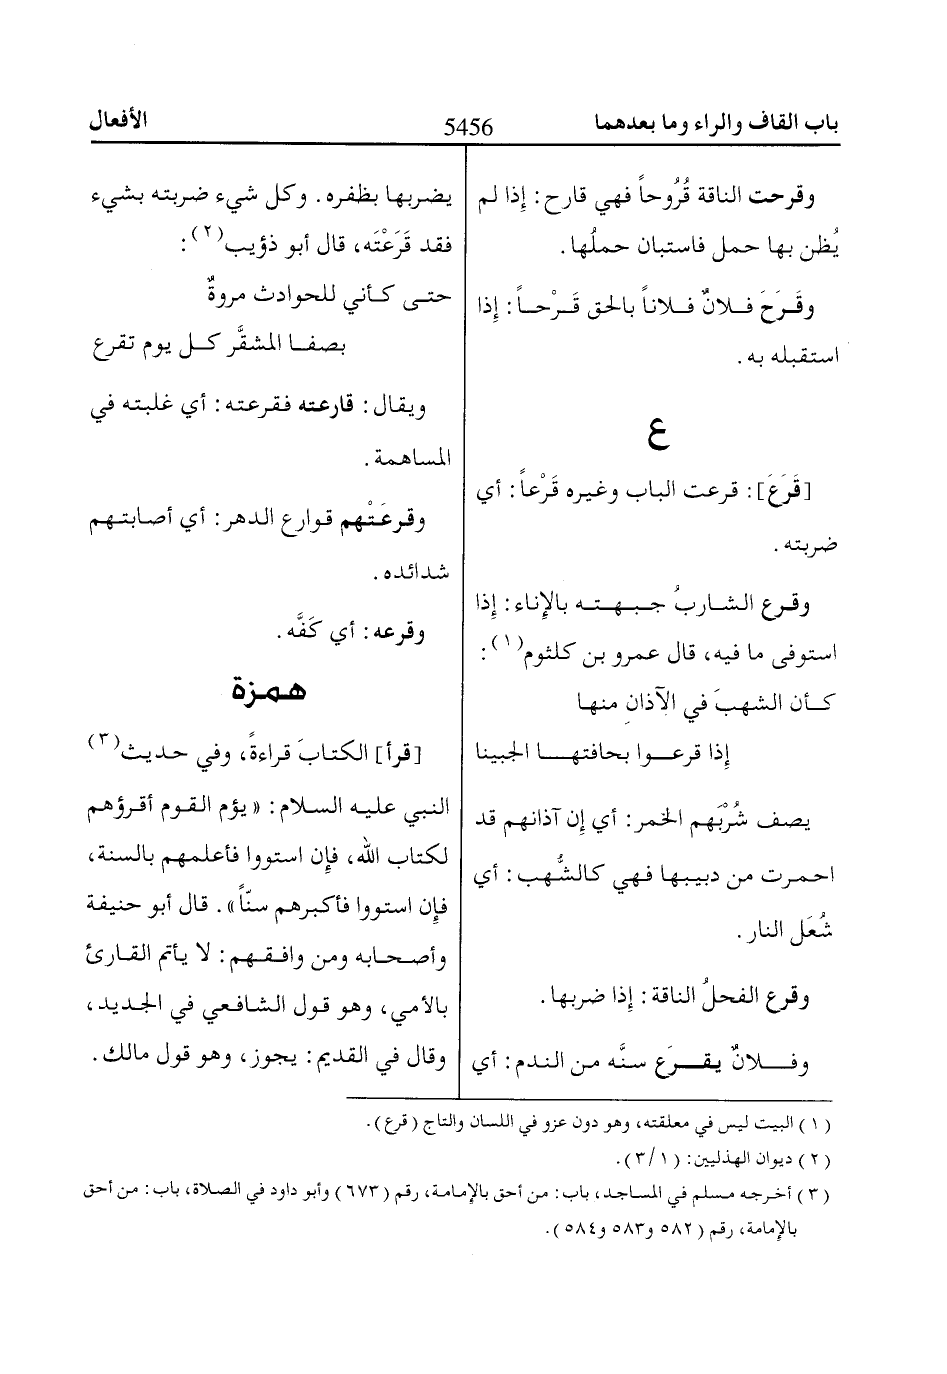 باب القاف والراء وما بعدهما
5456
الأفعال
وقرحت الناقة قُرُوحاً فهي قارح: إذا لم
يُظن بها حمل فاستبان حملُها.
وقَرَحَ فلانٌ فلاناً بالحق قَرْحاً: إذا
استقبله به.
ع
[قَرَعَ]: قرعت الباب وغيره قَرْعاً: أي
ضربته.
وقرع الشاربُ جبهته بالإناء: إذا
استوفى ما فيه، قال عمرو بن كلثوم(١):
كأن الشهبَ في الآذانِ منها
إذا قرعوا بحافتها الجبينا
يصف شُرْبَهم الخمر: أي إن آذانهم قد
احمرت من دبيبها فهي كالشُّهب: أي
شُعَل النار.
وقرع الفحلُ الناقة: إذا ضربها.
وفلانٌ يقرَع سنَّه من الندم: أي
يضربها بظفره. وكل شيء ضربته بشيء
فقد قَرَعْتَه، قال أبو ذؤيب(٢):
حتى كأني للحوادث مروةٌ
بصفا المشقَّر كل يوم تقرع
ويقال: قارعته فقرعته: أي غلبته في
المساهمة.
وقرعَتْهم قوارع الدهر: أي أصابتهم
شدائده.
وقرعه: أي كَفَّه.
همزة
[قرأ] الكتابَ قراءةً، وفي حديث(٣)
النبي عليه السلام: «يؤم القوم أقرؤهم
لكتاب الله، فإن استووا فأعلمهم بالسنة،
فإن استووا فأكبرهم سنّاً». قال أبو حنيفة
وأصحابه ومن وافقهم: لا يأتم القارئ
بالأمي، وهو قول الشافعي في الجديد،
وقال في القديم: يجوز، وهو قول مالك.
(١) البيت ليس في معلقته، وهو دون عزو في اللسان والتاج (قرع).
(٢) ديوان الهذليين: (٣/١).
(٣) أخرجه مسلم في المساجد، باب: من أحق بالإمامة، رقم (٦٧٣) وأبو داود في الصلاة، باب: من أحق
بالإمامة، رقم (٥٨٢ و٥٨٣ و٥٨٤).